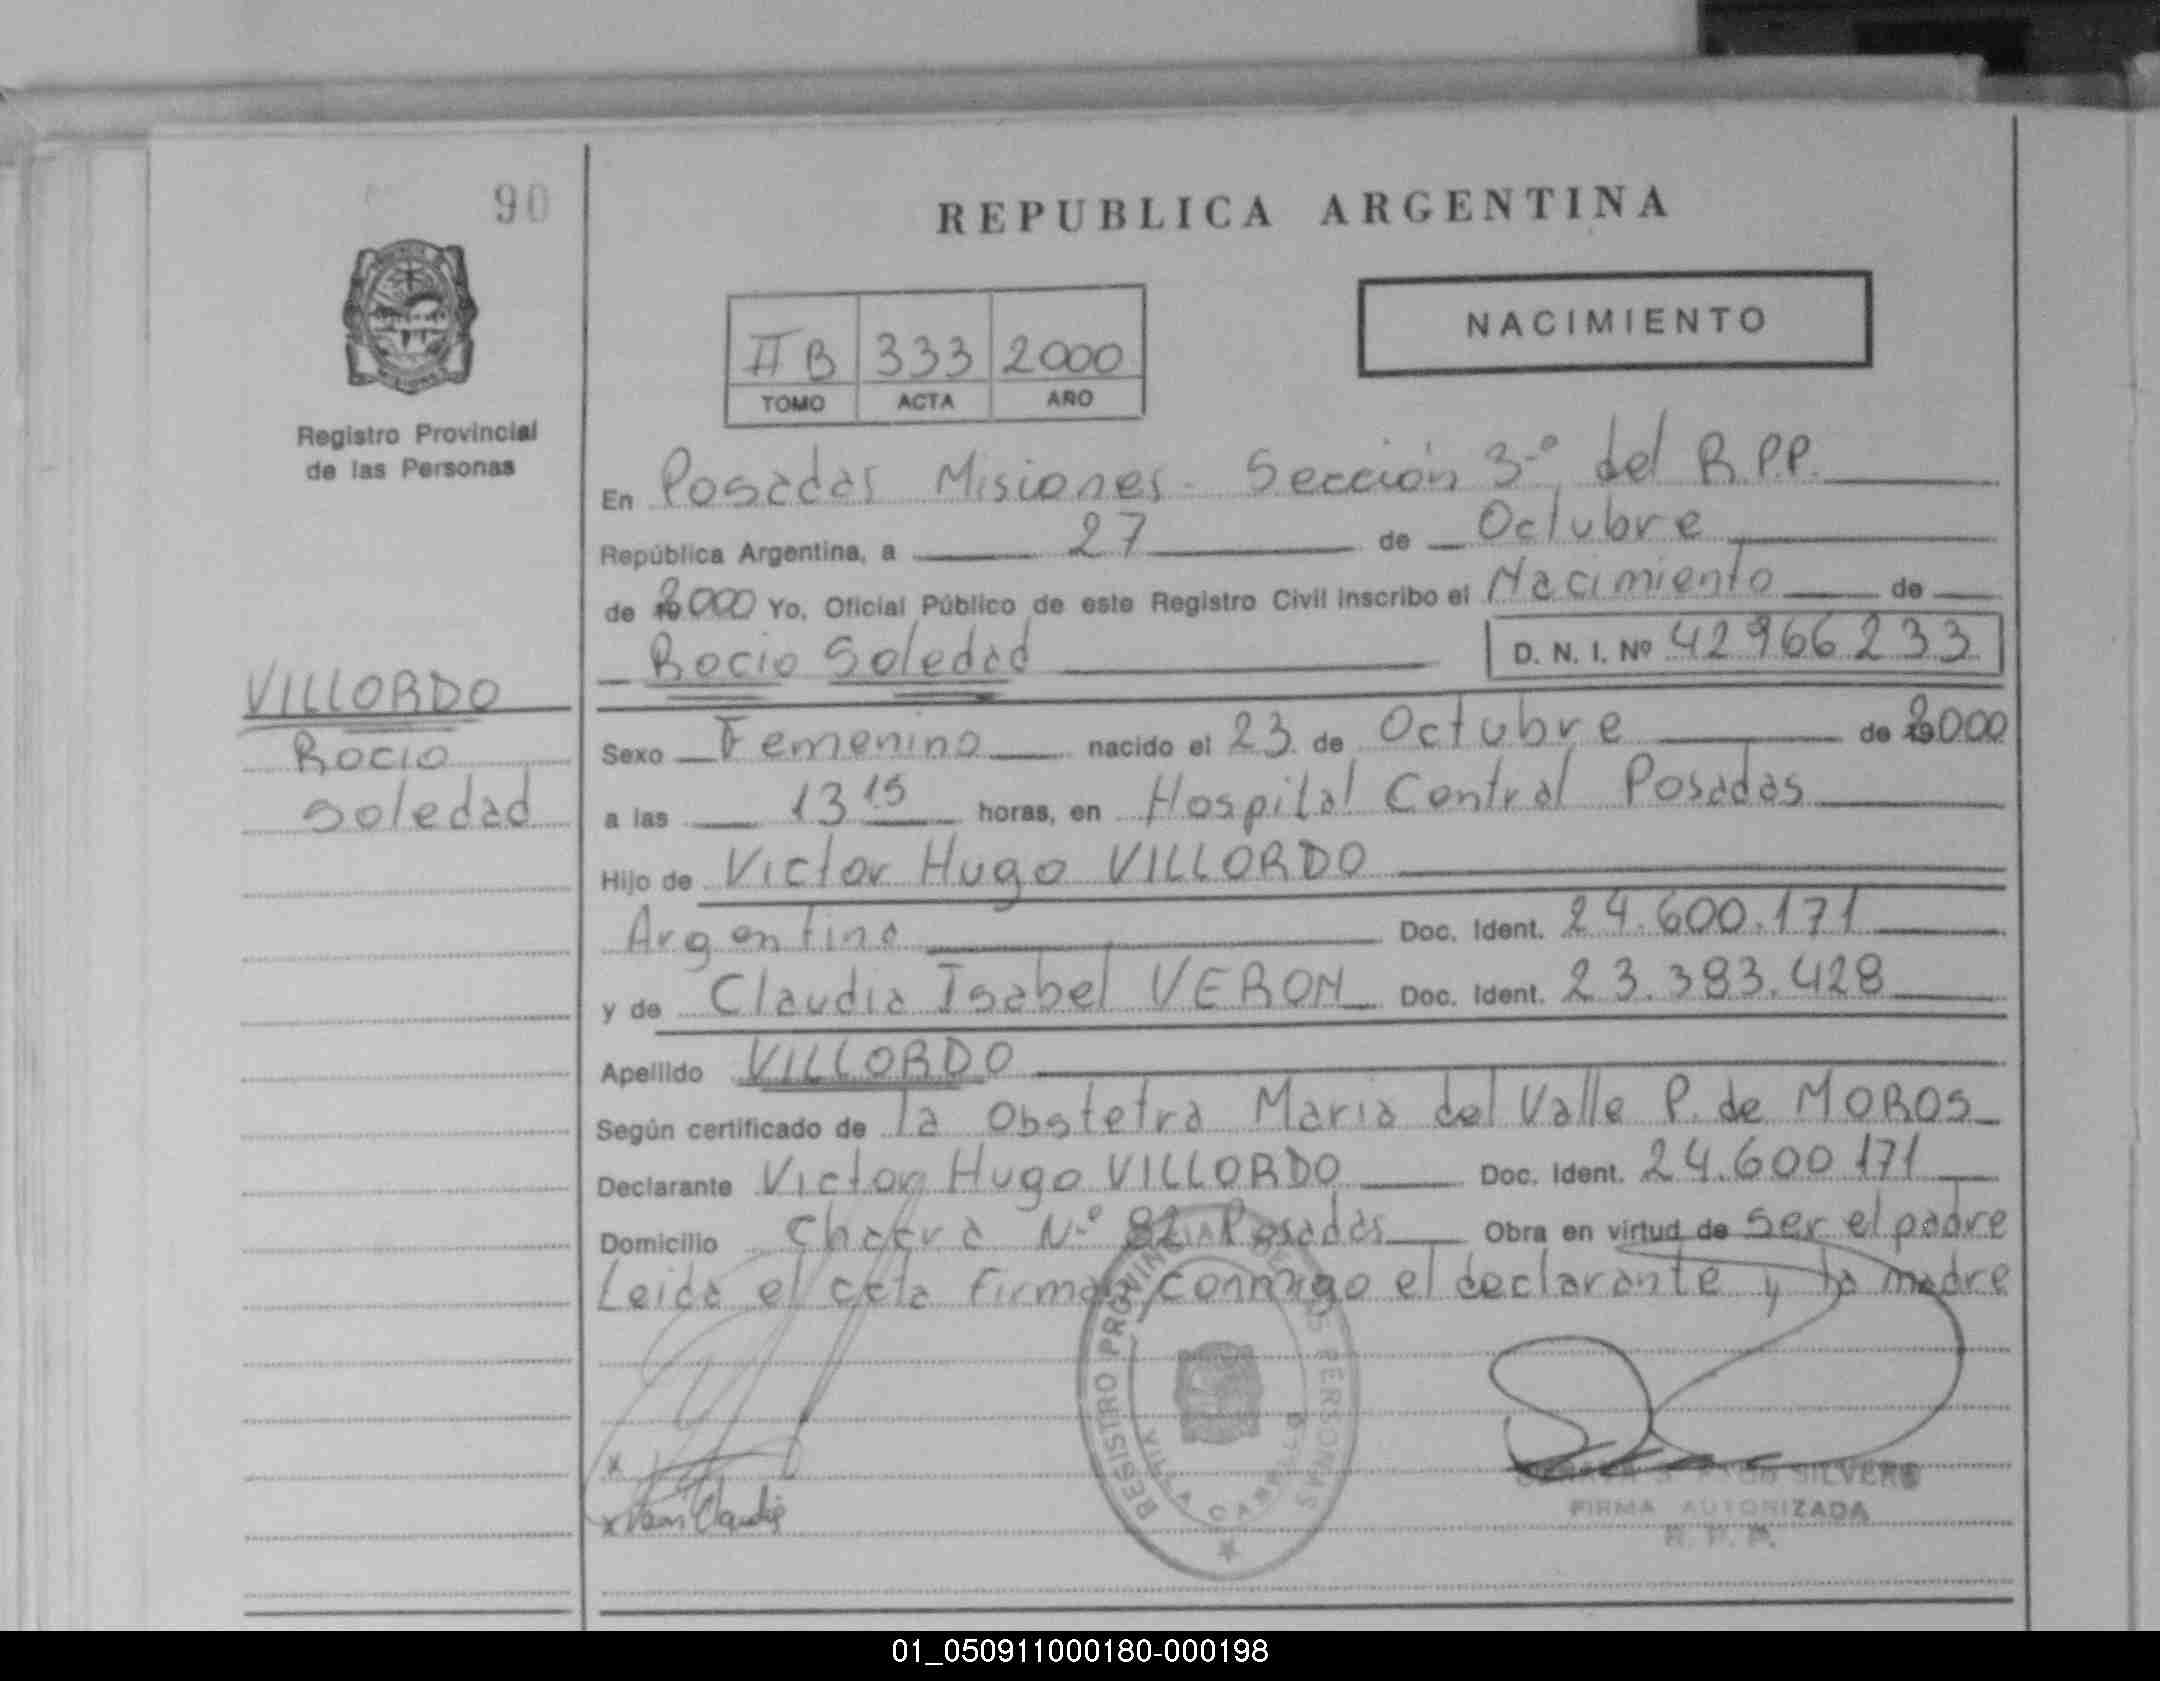 90
REPUBLICA ARGENTINA
II B 333 2000
TOMO ACTA AÑO
NACIMIENTO
Registro Provincial
de las Personas
En Posadas Misiones - Sección 3º del R.P.P.
República Argentina, a 27 de Octubre
de 2000 Yo, Oficial Público de este Registro Civil inscribo el Nacimiento de
Rocio Soledad D. N. I. Nº 42966233
VILLORDO
Rocio
Soledad
Sexo Femenino nacido el 23 de Octubre de 2000
a las 13 15 horas, en Hospital Central Posadas
Hijo de Victor Hugo VILLORDO
Argentino Doc. Ident. 24.600.171
y de Claudia Isabel VERON Doc. Ident. 23.383.428
Apellido VILLORDO
Según certificado de la Obstetra Maria del Valle P. de MOROS
Declarante Victor Hugo VILLORDO Doc. Ident. 24.600.171
Domicilio Chacra Nº 82 Posadas Obra en virtud de ser el padre
Leida el acta firman conmigo el declarante y la madre
REGISTRO PROVINCIAL DE LAS PERSONAS
VILLA CABELLO
SILVERO
FIRMA AUTORIZADA
R. P. P.
Claudia
01_050911000180-000198